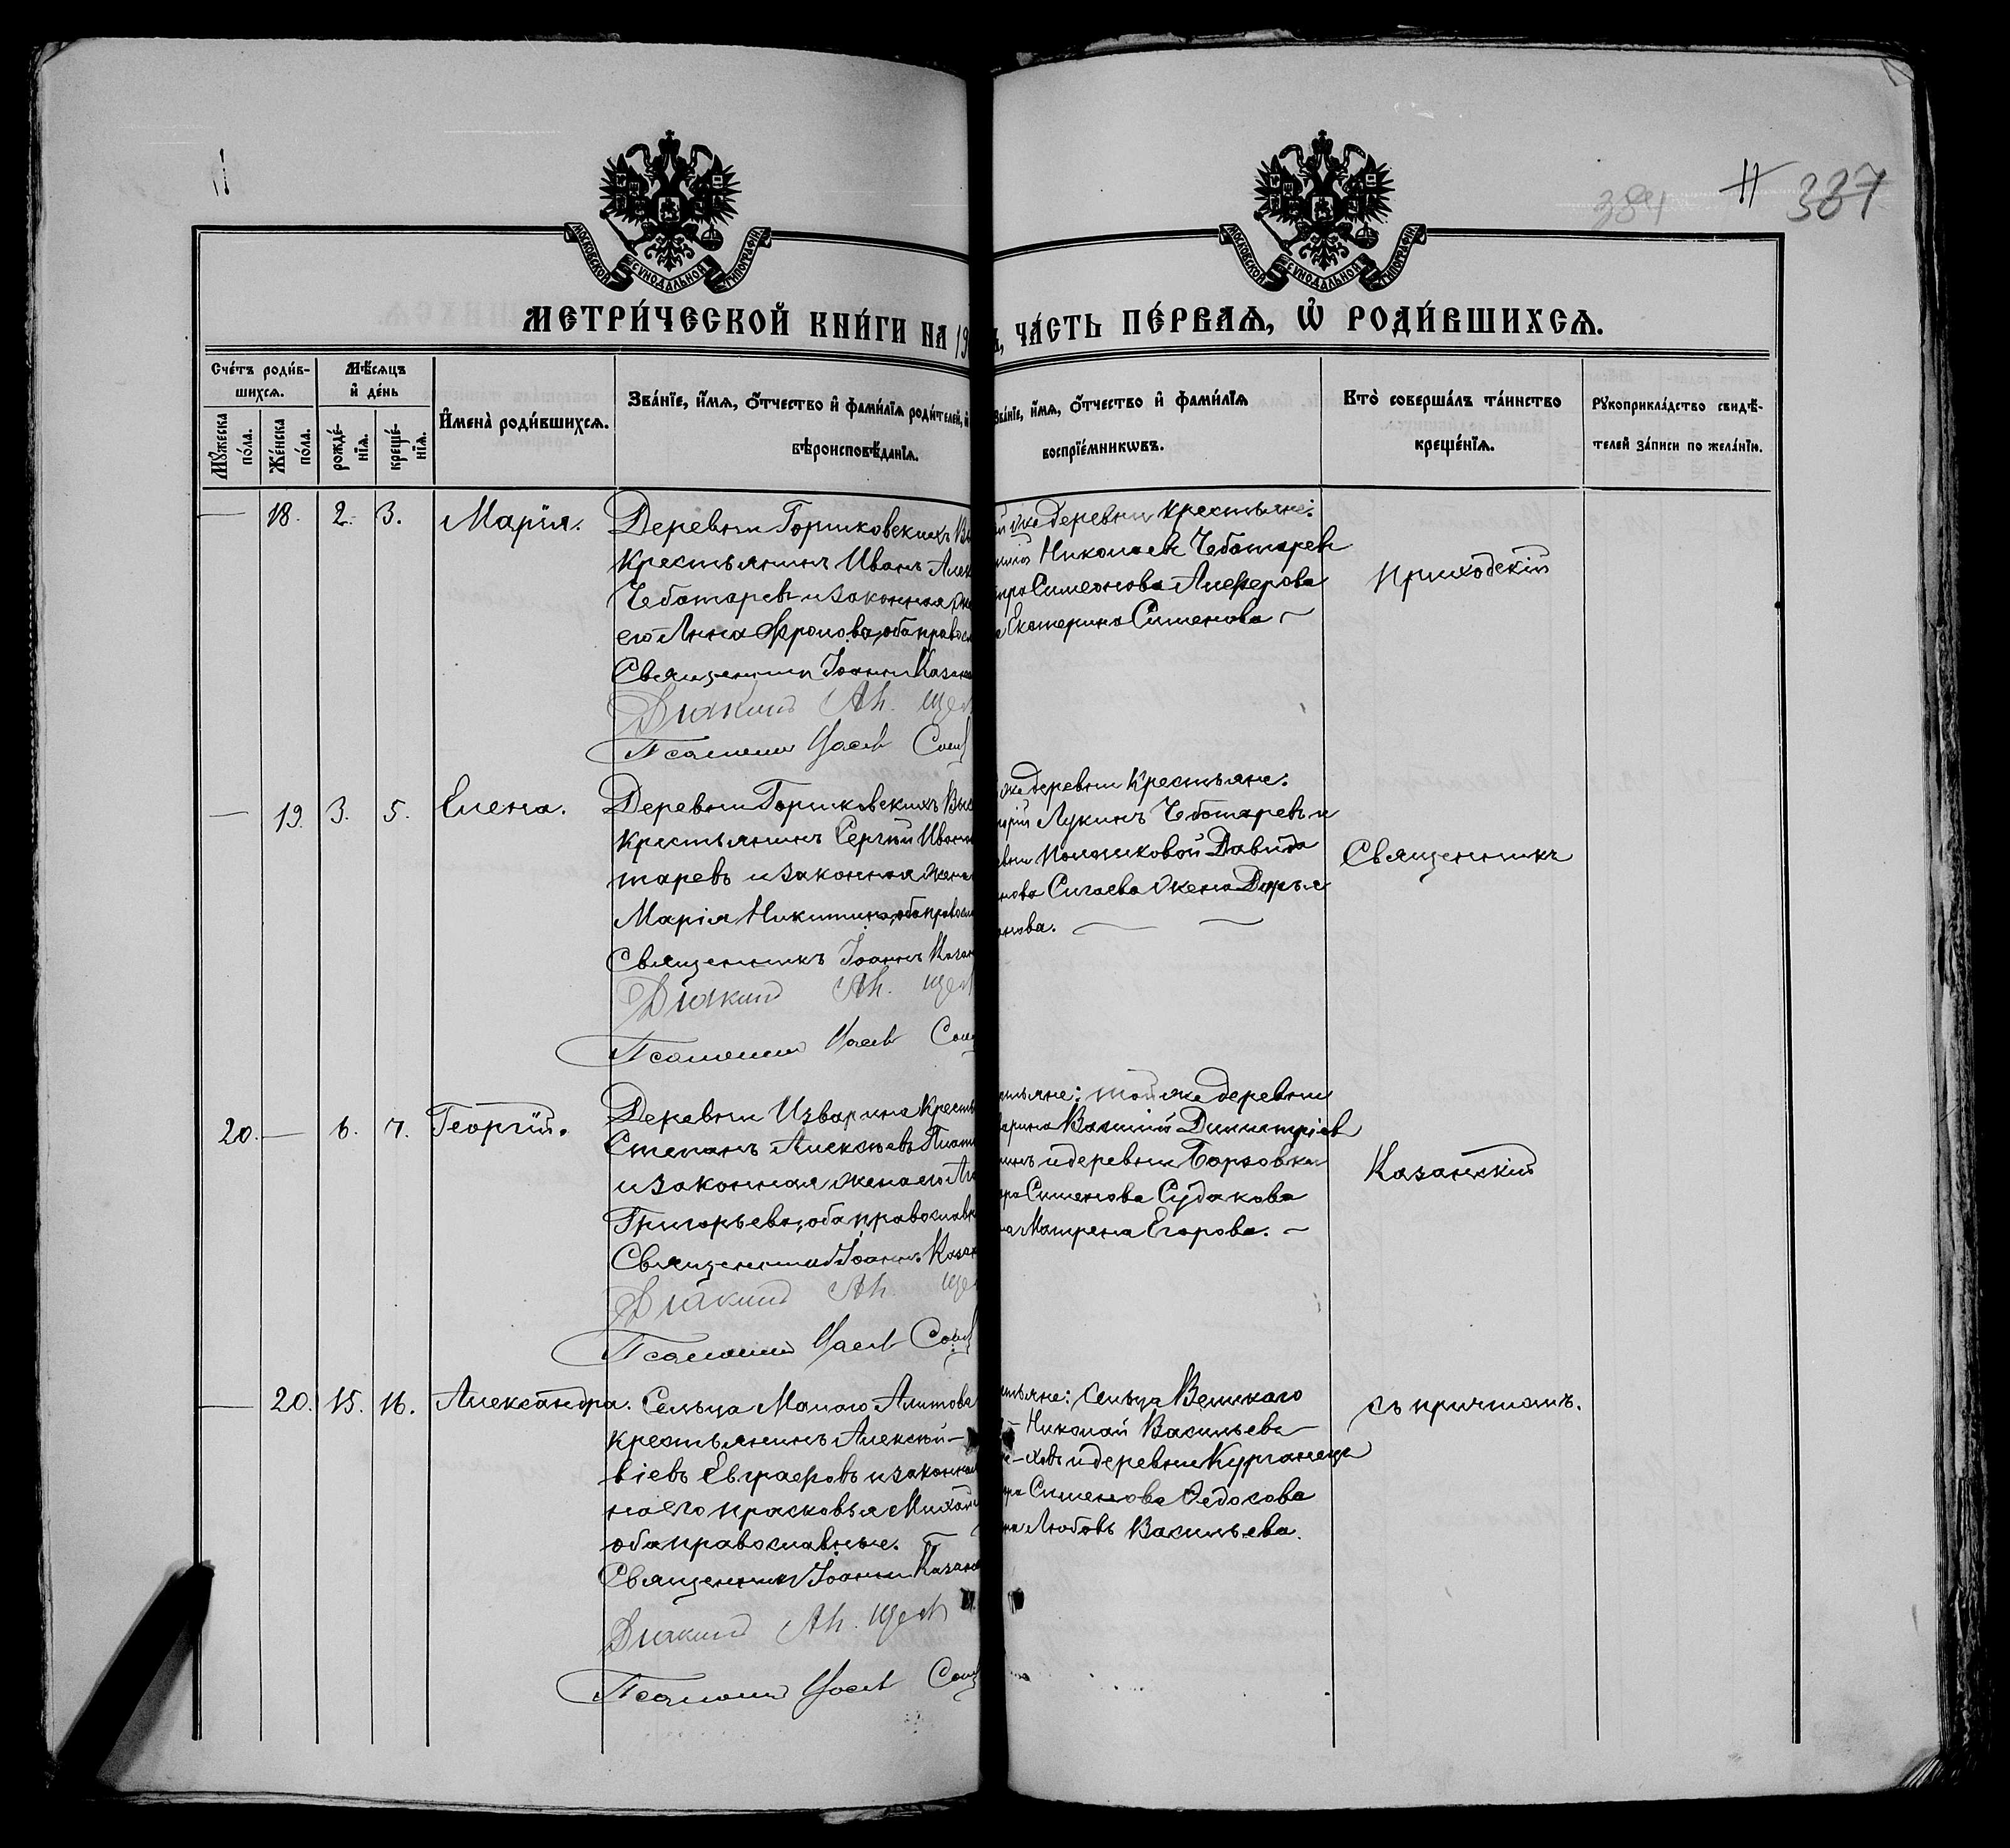 384 11 387
МОСКОВСКОЙ СѴНОДАЛЬНОЙ ТИПОГРАФІИ
МОСКОВСКОЙ СѴНОДАЛЬНОЙ ТИПОГРАФІИ
МЕТРИ́ЧЕСКОЙ КНИ́ГИ НА 19
, ЧА́СТЬ ПЕ́РВАѦ, Ѡ҆ РОДИ́ВШИХСѦ.
Сче́тъ роди́в-
шихсѧ.
Мꙋ́жеска
по́ла.
Же́нска
по́ла.
Мѣ́сѧцъ
и҆ де́нь
рожде́-
нїѧ.
креще́-
нїѧ.
И҆мена̀ роди́вшихсѧ.
Зва́нїе, и҆́мѧ, ѻ҆́тчество и҆ фамѝлїѧ роди́телей, и҆
вѣроисповѣ́данїѧ.
Зва́нїе, и҆́мѧ, ѻ҆́тчество и҆ фамѝлїѧ
воспрїе́мникѡвъ.
Кто̀ соверша́лъ та́инство
креще́нїѧ.
Рꙋкоприкла́дство свидѣ́-
телей за́писи по жела́нїю.
— 18. 2. 3. Марія.
Деревни Горшковскихъ Вы
крестьянинъ Иванъ Алек
Чеботаревъ и законная же
его Анна Фролова, оба правос
Священникъ Іоаннъ Казан
Діаконъ Ал. Щег
Псаломщ
й же деревни крестьяне:
Николаевъ Чеботаревъ
Симеонова Алферова
Екатерина Симеонова
Приходскій
— 19. 3. 5. Елена.
Деревни Горшковскихъ Выс
крестьянинъ Сергѣй Ивано
таревъ и законная жена
Марія Никитина, оба правосл
Священникъ Іоаннъ Казан
Діаконъ Ал. Щег
Псаломщ
же деревни крестьяне:
Лукинъ Чеботаревъ и
Давида
нова Сигаева жена Дарья
нова.
Священникъ
20. — 6. 7. Георгій.
Деревни Изварина крест
Степанъ Алексѣевъ Плат
и законная жена его
Григорьева, оба православ
Священникъ Іоаннъ Казан
Діаконъ Ал. Ще
Псаломщ
стьяне: той же деревни
варина Василій Димитріев
инъ и деревни Борзовки
Симеонова Судакова
на Матрена Егорова.
Казанскій
— 20. 15. 16. Александра.
Сельца Малаго Алитова
крестьянинъ Алексѣй —
віевъ Евграфовъ и законная
на его Прасковья Михай
оба православные.
Священникъ Іоаннъ Казанс
Діаконъ Ал. Щег
Псаломщ
стьяне: сельца Великаго
Николай Васильевъ
ховъ и деревни Курганица
Симеонова Ѳедосова
на Любовь Васильева.
съ причтомъ.